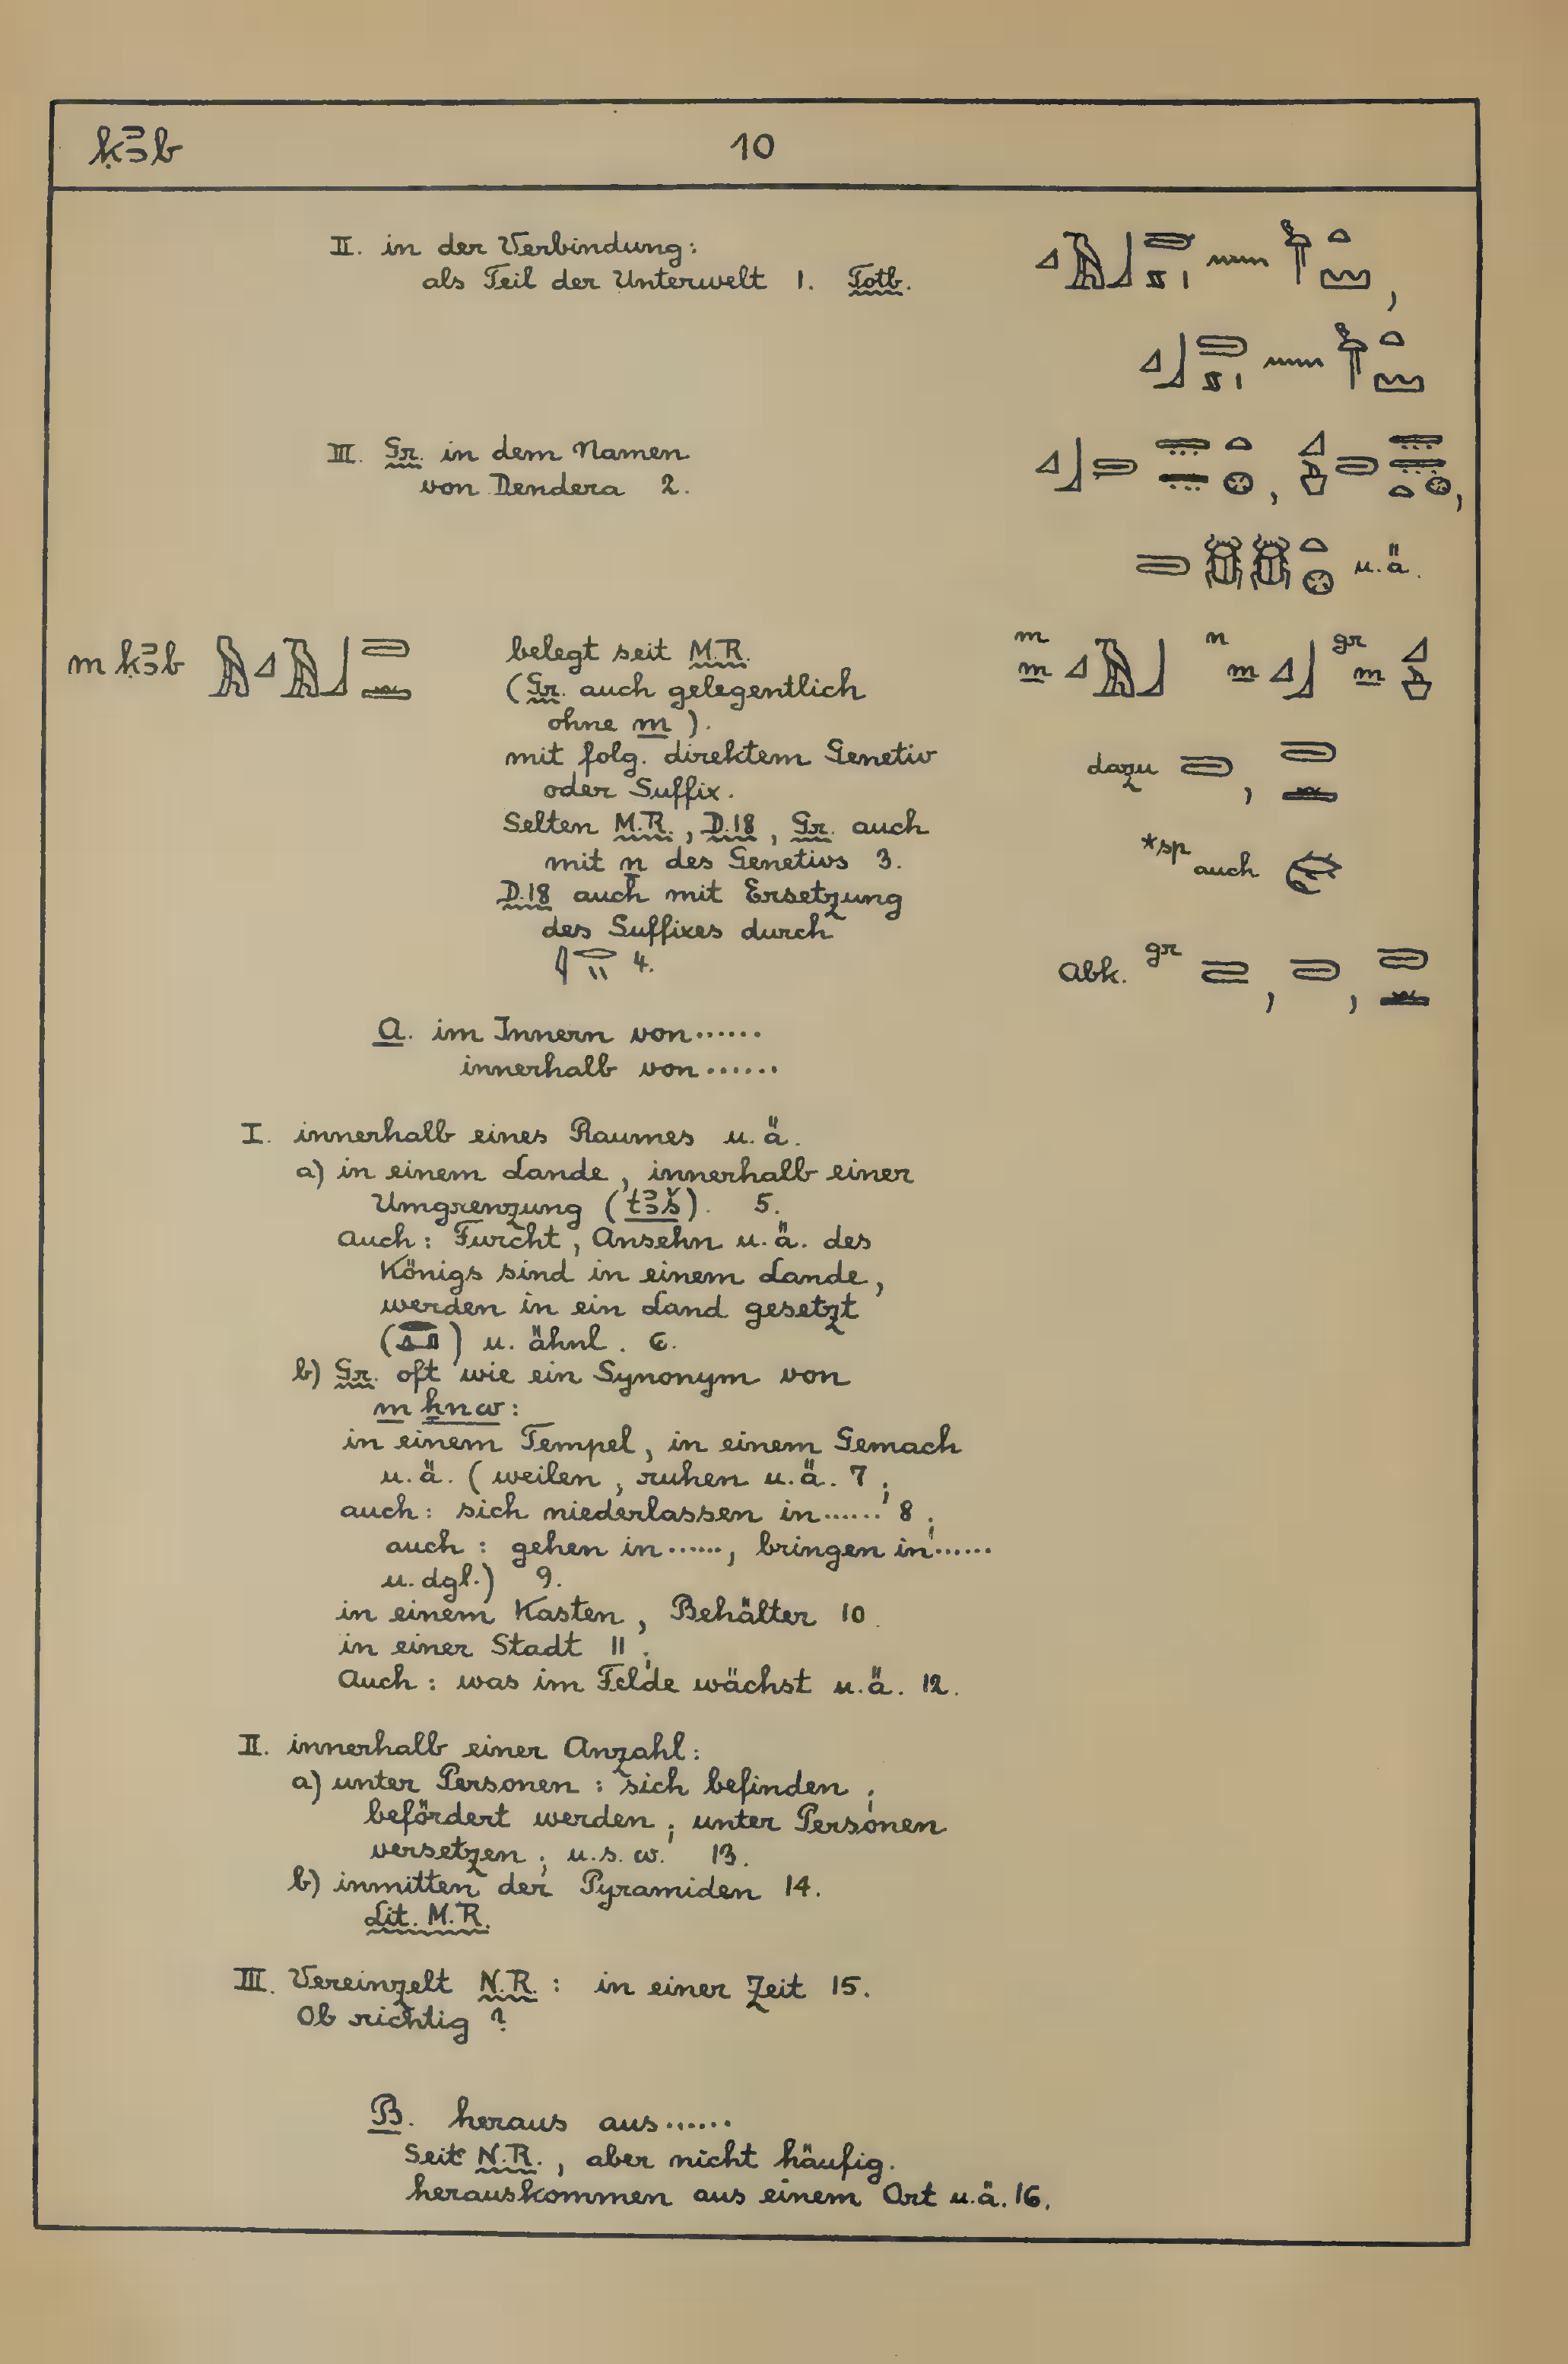 ḳꜣb 10
II. in der Verbindung:
als Teil der Unterwelt 1. Totb.
III. Gr. in dem Namen
von Dendera 2.
u.ä.
m ḳꜣb
belegt seit M.R.
(Gr. auch gelegentlich
ohne m).
mit folg. direktem Genetiv
oder Suffix.
Selten M.R., D.18, Gr. auch
mit n des Genetivs 3.
D.18 auch mit Ersetzung
des Suffixes durch
4.
m n gr
m m m
dazu
*sp auch
Abk. gr
A. im Innern von......
innerhalb von......
I. innerhalb eines Raumes u.ä.
a) in einem Lande, innerhalb einer
Umgrenzung (tꜣš). 5.
auch: Furcht, Ansehn u.ä. des
Königs sind in einem Lande,
werden in ein Land gesetzt
( ) u. ähnl. 6.
b) Gr. oft wie ein Synonym von
m ẖnw:
in einem Tempel, in einem Gemach
u.ä. (weilen, ruhen u.ä. 7;
auch: sich niederlassen in...... 8;
auch: gehen in......, bringen in......
u. dgl.) 9.
in einem Kasten, Behälter 10.
in einer Stadt 11;
Auch: was im Felde wächst u.ä. 12.
II. innerhalb einer Anzahl:
a) unter Personen: sich befinden;
befördert werden; unter Personen
versetzen; u.s.w. 13.
b) inmitten der Pyramiden 14.
Lit. M.R.
III. Vereinzelt N.R.: in einer Zeit 15.
Ob richtig?
B. heraus aus......
Seit N.R., aber nicht häufig.
herauskommen aus einem Ort u.ä. 16.